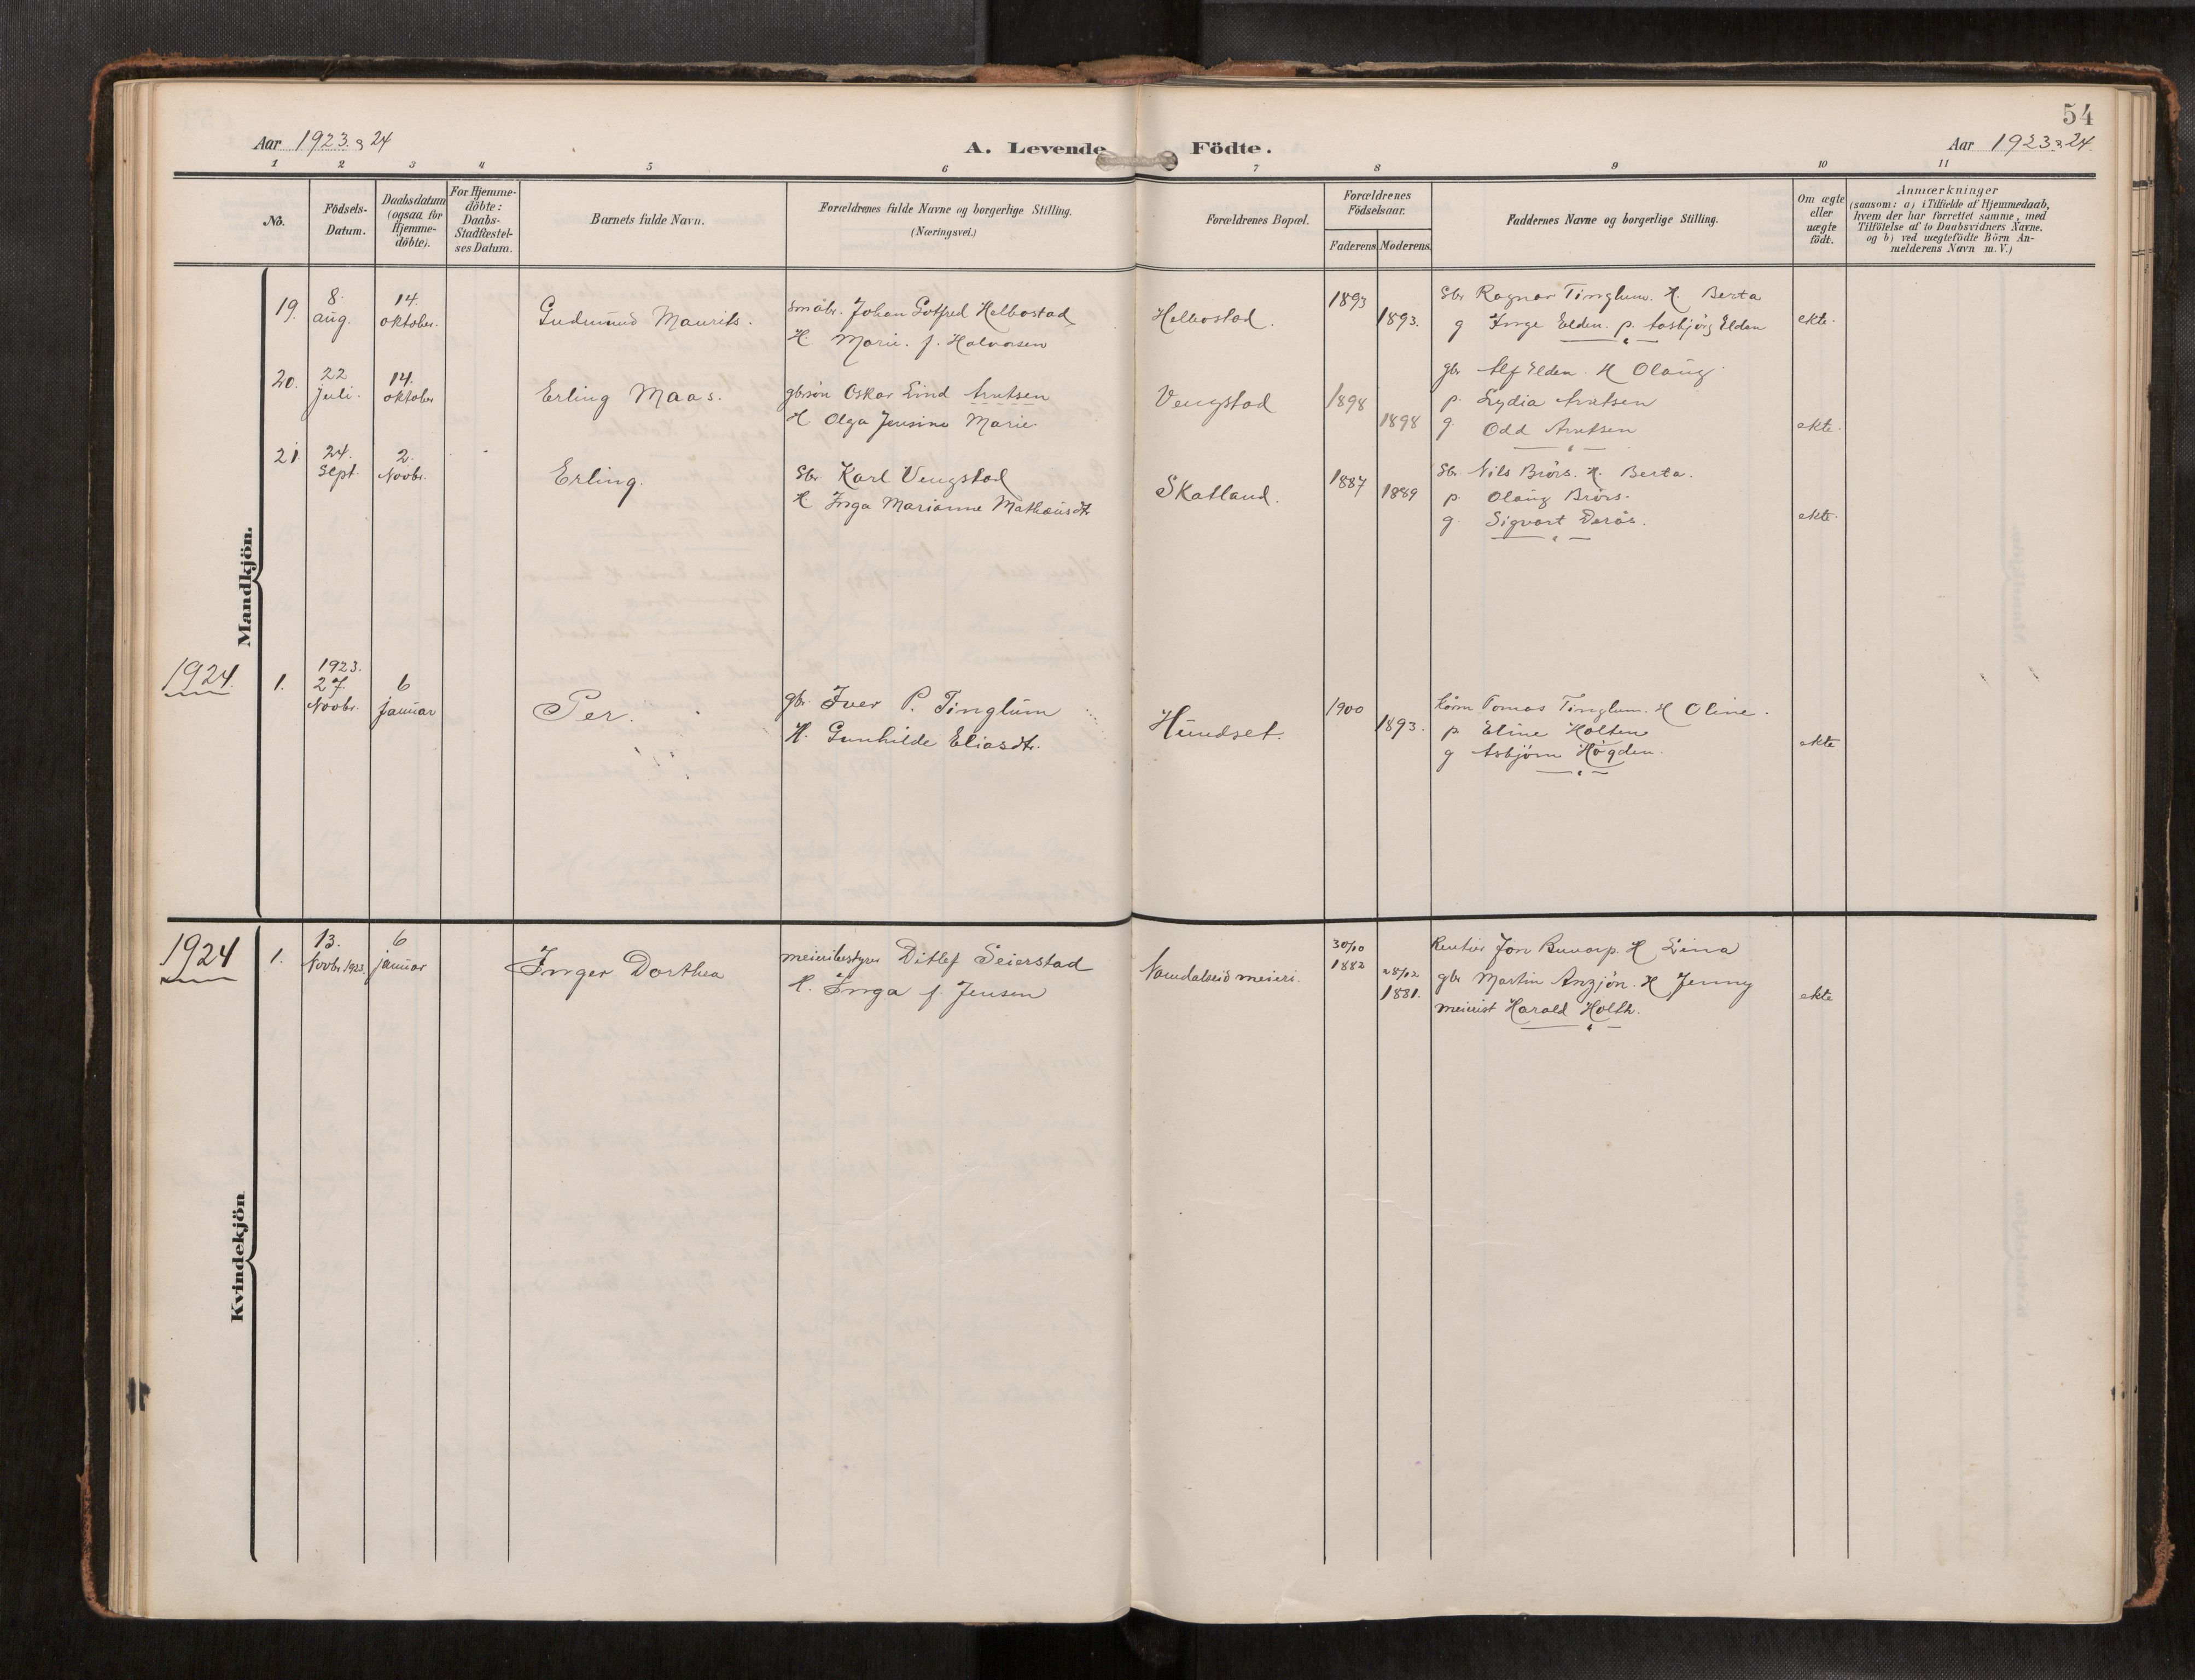 54
Aar 1923 & 24
A. Levende Födte.
Aar 1923 & 24.
1 2 3 4 5 6 7 8 9 10 11
No.
Födsels-
Datum.
Daabsdatum
(ogsaa for
Hjemme-
døbte).
For Hjemme-
døbte:
Daabs-
Stadfæstel-
ses Datum.
Barnets fulde Navn.
Forældrenes fulde Navne og borgerlige Stilling.
(Næringsvei.)
Forældrenes Bopæl.
Forældrenes
Födselsaar.
Faderens. Moderens.
Faddernes Navne og borgerlige Stilling.
Om ægte
eller
uægte
födt.
Anmærkninger
(saasom: a) i Tilfælde af Hjemmedaab,
hvem der har forrettet samme, med
Tilföielse af to Daabsvidners Navne,
og b) ved uægtefödte Börn An-
melderens Navn m. V.)
Mandkjön.
19. 8. aug. 14. oktober. Gudmund Maurits.
småbr. Johan Gotfred Helbostad
H. Marie f. Halvorsen
Helbostad. 1893 1893.
Gbr Ragnar Tinglum. H. Berta
g Inge Elden. p. Aasbjørg Elden
ekte.
20. 22 juli. 14. oktober Erling Maas.
gbrsøn Oskar Eind Arntsen
H Olga Jensine Marie.
Vengstad 1898 1898
gbr Alf Elden. H Olaug.
p. Lydia Arntsen
g. Odd Arntsen
ekte.
21 24. Sept. 2. Novbr. Erling.
Gbr Karl Vengstad
H Inga Marianne Mathæusdtr
Skatland. 1887 1889
Gbr Nils Brørs. H. Berta.
p. Olaug Brørs.
g. Sigvart Derås.
ekte.
1924. 1. 1923. 27. Novbr. 6 januar Per.
gbr. Iver P. Tinglum
H. Gunhilde Eliasdtr.
Hundset. 1900 1893.
Tomas Tinglum. H Oline.
p Eline Holten
g Asbjørn Høgden.
ekte
Kvindekjön
1924 1. 13. Novbr 1923. 6 januar Inger Dorthea
meieribestyrer Ditlef Seierstad
H. Inga f. Jensen
Namdalseid meieri.
30/10 1882 28/12 1881.
Rentier Jon Buvarp. H Lina
gbr Martin Anzjøn. H Jenny
meierist Harald Holth.
ekte